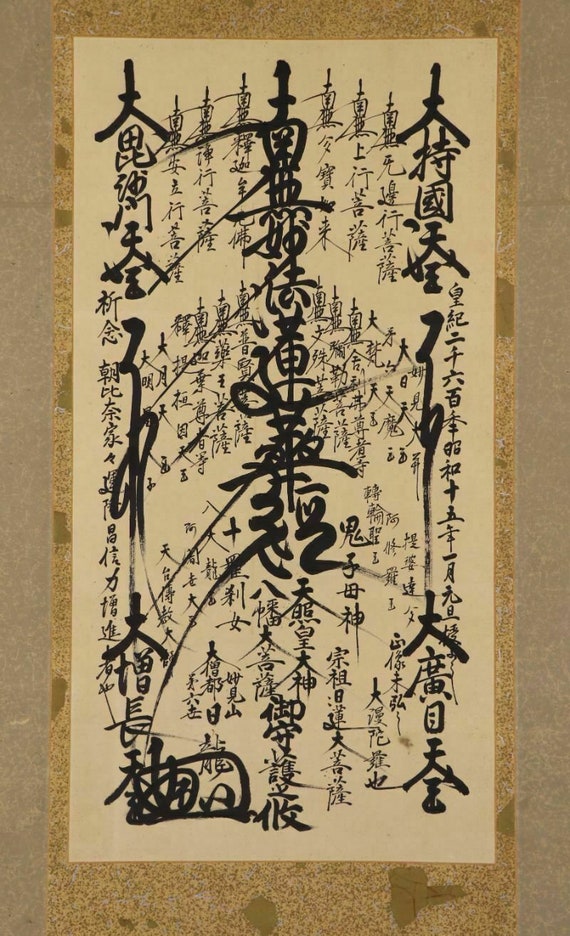 大持國天王
大廣目天王
皇紀二千六百年昭和十五年一月元旦
南無無邊行菩薩
南無上行菩薩
南無多寶如來
南無妙法蓮華經
南無釋迦牟尼佛
南無淨行菩薩
南無安立行菩薩
大毘沙門天王
大增長天王
大日天王
第六天魔王
大龍天王
南無舍利弗尊者等
南無彌勒菩薩
南無文殊菩薩
南無普賢菩薩
南無藥王菩薩
南無迦葉尊者等
釋提桓因天王
大月天王
大明星天子
提婆達多
阿修羅王
轉輪聖王
鬼子母神
十羅刹女
八大龍王
阿闍世大王
天台傳教大師
天照皇大神
八幡大菩薩
宗祖日蓮大菩薩
御守護之攸
正像未弘之
大漫陀羅也
妙見山
第六世
大僧都日龍
祈念 朝比奈家々運隆昌信力增進者也